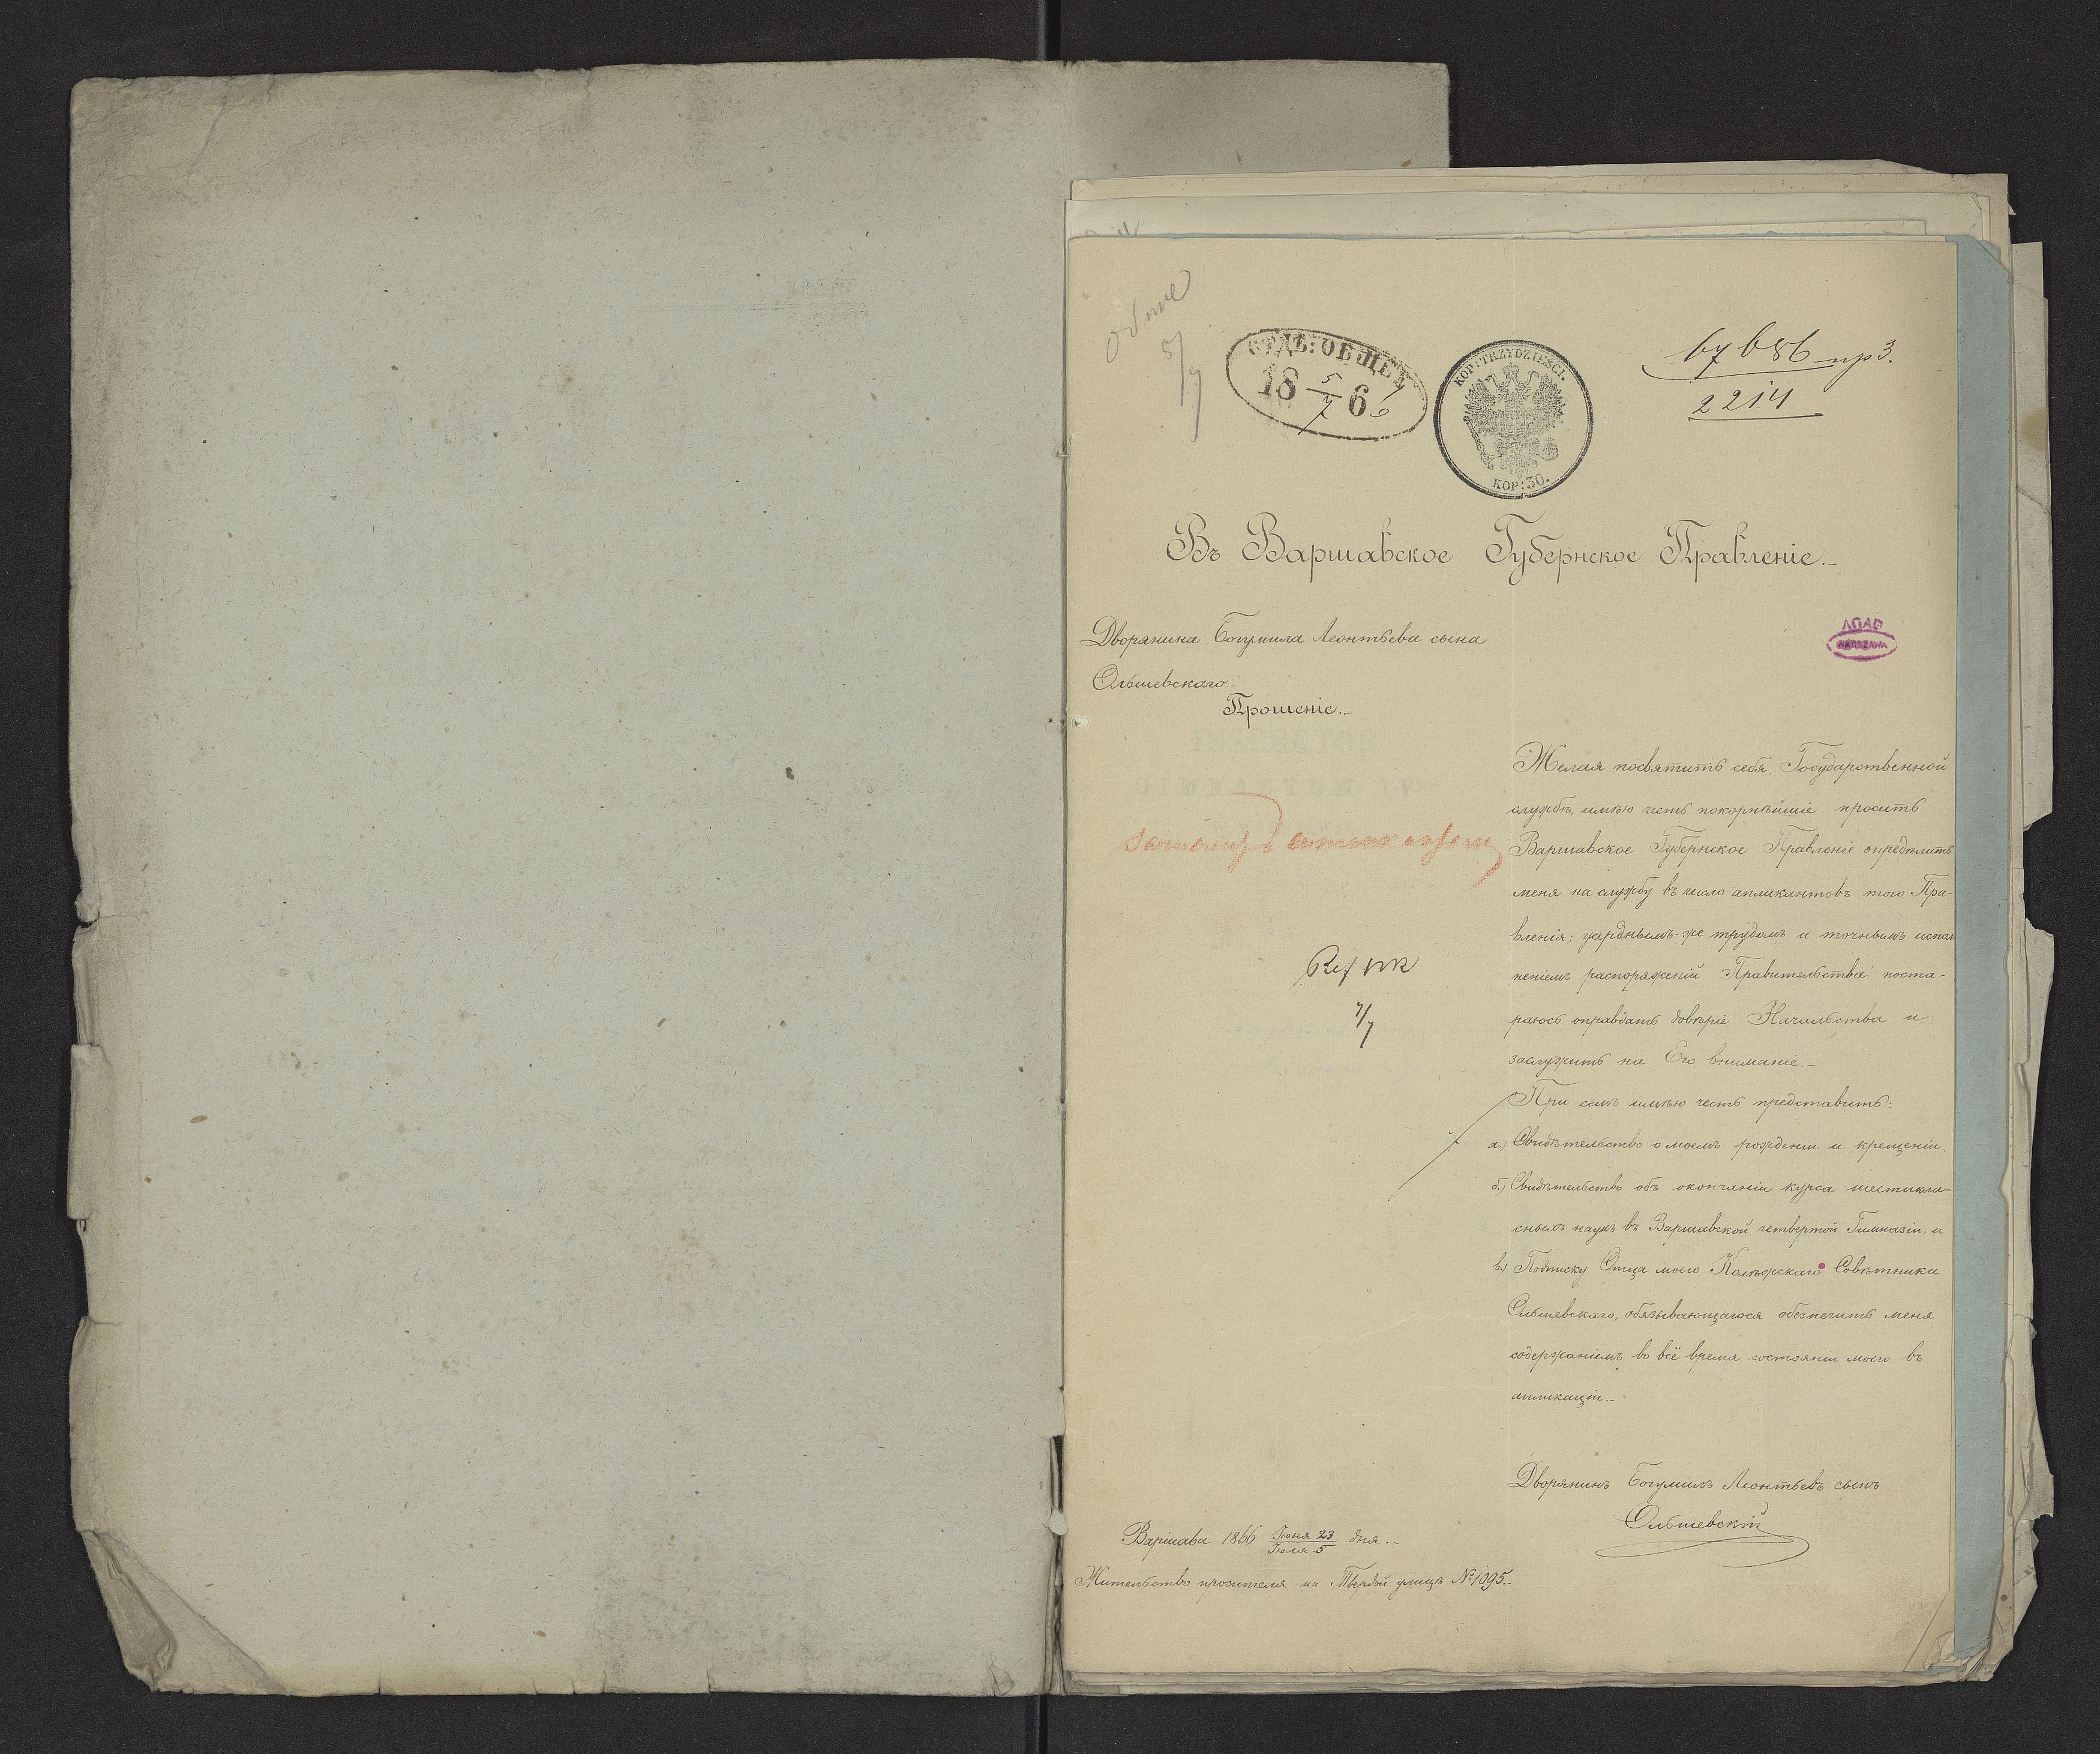 5/7
ОТДѢЛ: ОБЩЕЕ
18 5/7 66
KOP: TRZYDZIEŚCI.
KOP: 30.
2214
Въ Варшавское Губернское Правленіе.
AGAD
WARSZAWA
Дворянина Богумила Леонтьева сына
Ольшевскаго
Прошеніе.
Желая посвятить себя Государственной
службѣ, имѣю честь покорнѣйшіе просить
Варшавское Губернское Правленіе опредѣлить
меня на службу въ число апликантовъ того Пра-
вленія; усерднымъ-же трудомъ и точнымъ испол
неніемъ распоряженій Правительства поста-
раюсь оправдать довѣріе Начальства и
заслужить на Его вниманіе.
7/7
При семъ имѣю честь представить:
а.) Свидѣтельство о моемъ рожденіи и крещеніи
б.) Свидѣтельство объ окончаніи курса шестикла-
сныхъ наукъ въ Варшавской четвертой Гимназіи, и
в.) Подписку Отца моего Совѣтника
Ольшевскаго, обязывающагося обезпечить меня
содержаніемъ во всё время состоянія моего въ
апликаціи.
Дворянинъ Богумилъ Леонтьевъ сынъ
Ольшевскій
Варшава 1866 Іюня 23 / Іюля 5 дня.
Жительство просителя на Твердой улицѣ № 1095.